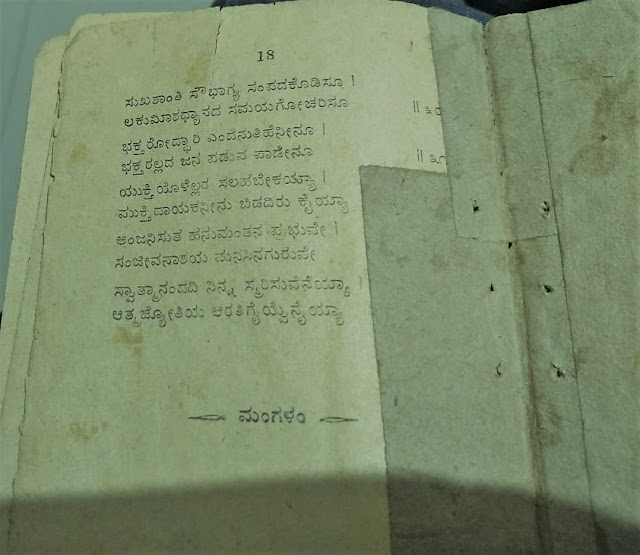 18
ಸುಖಶಾಂತಿ ಸೌಭಾಗ್ಯ ಸಂಪದಕೊಡಿಸೂ |
ಲಕುಮೀಶಧ್ಯಾನದ ಸಮಯಗೋಚರಿಸೂ || ೩೦
ಭಕ್ತರೋದ್ಧಾರಿ ಎಂದೆನುತಿಹೆನೀನೂ |
ಭಕ್ತರಲ್ಲದ ಜನ ಪಡುವ ಪಾಡೇನೂ || ೩೧
ಯುಕ್ತಿಯೊಳೆಲ್ಲರ ಸಲಹಬೇಕಯ್ಯಾ |
ಮುಕ್ತಿದಾಯಕನೀನು ಬಿಡದಿರು ಕೈಯ್ಯಾ
ಆಂಜನಿಸುತ ಹನುಮಂತನ ಪ್ರಭುವೇ |
ಸಂಜೀವನಾಶಯ ಮನಸಿನಗುರುವೇ
ಸ್ವಾತ್ಮಾನಂದದಿ ನಿನ್ನ ಸ್ಮರಿಸುವೆನೆಯ್ಯಾ |
ಆತ್ಮಜ್ಯೋತಿಯ ಆರತಿಗೈಯ್ವೆನೈಯ್ಯಾ
ಮಂಗಳಂ